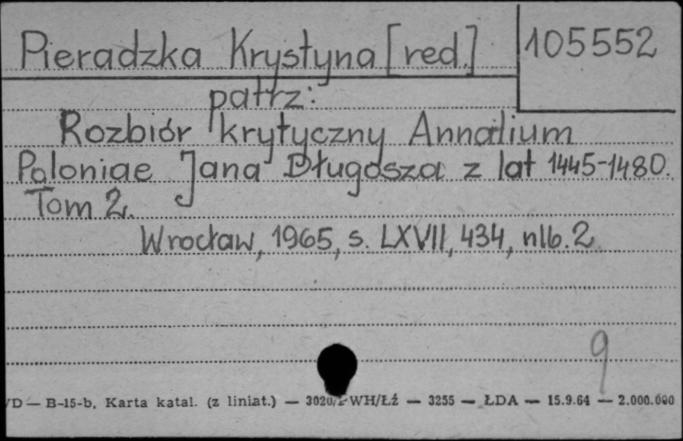 Pieradzka Krystyna [red.] 105552
patrz:
Rozbiór krytyczny Annalium
Poloniae Jana Długosza z lat 1445-1480.
Tom 2.
Wrocław, 1965, s. LXVII, 434, nlb. 2
9
D — B-15-b, Karta katal. (z liniat.) — WH/Łź — 3255 — ŁDA — 15.9.64 — 2.000.000